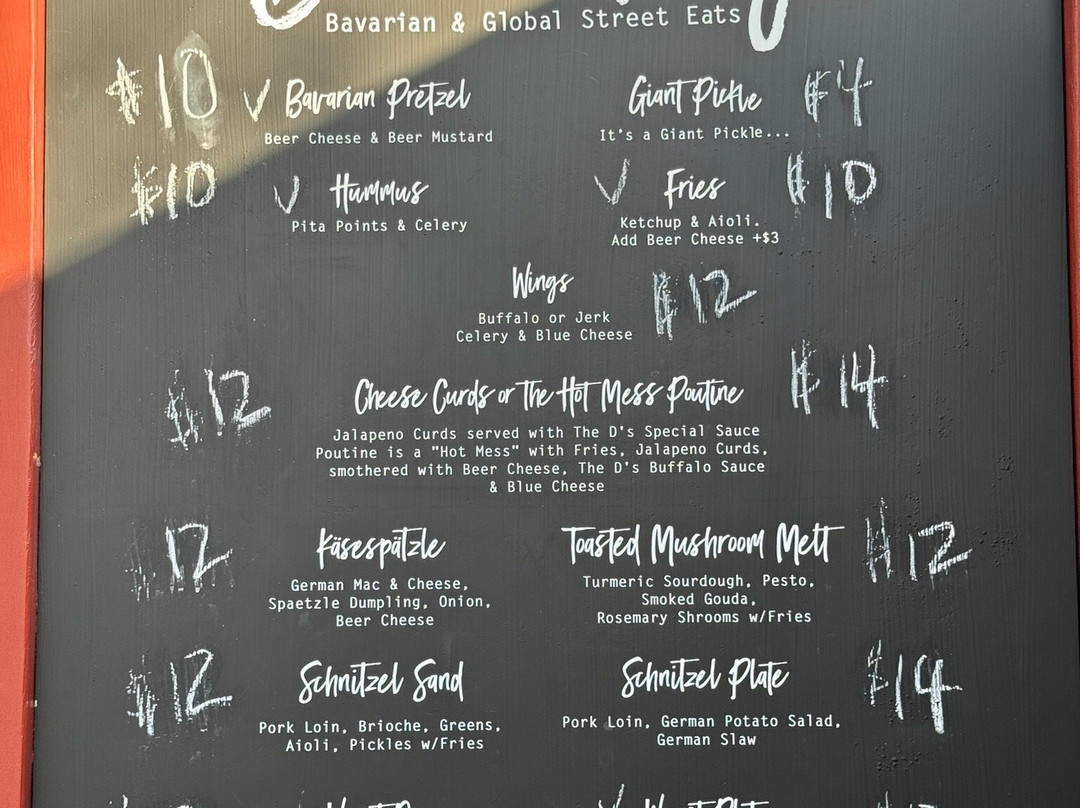 Bavarian & Global Street Eats
$10 ✓ Bavarian Pretzel
Beer Cheese & Beer Mustard
Giant Pickle $4
It's a Giant Pickle...
$10 ✓ Hummus
Pita Points & Celery
✓ Fries $10
Ketchup & Aioli.
Add Beer Cheese +$3
Wings $12
Buffalo or Jerk
Celery & Blue Cheese
$12 Cheese Curds or The Hot Mess Poutine $14
Jalapeno Curds served with The D's Special Sauce
Poutine is a "Hot Mess" with Fries, Jalapeno Curds,
smothered with Beer Cheese, The D's Buffalo Sauce
& Blue Cheese
$12 Käsespätzle
German Mac & Cheese,
Spaetzle Dumpling, Onion,
Beer Cheese
Toasted Mushroom Melt $12
Turmeric Sourdough, Pesto,
Smoked Gouda,
Rosemary Shrooms w/Fries
$12 Schnitzel Sand
Pork Loin, Brioche, Greens,
Aioli, Pickles w/Fries
Schnitzel Plate $14
Pork Loin, German Potato Salad,
German Slaw